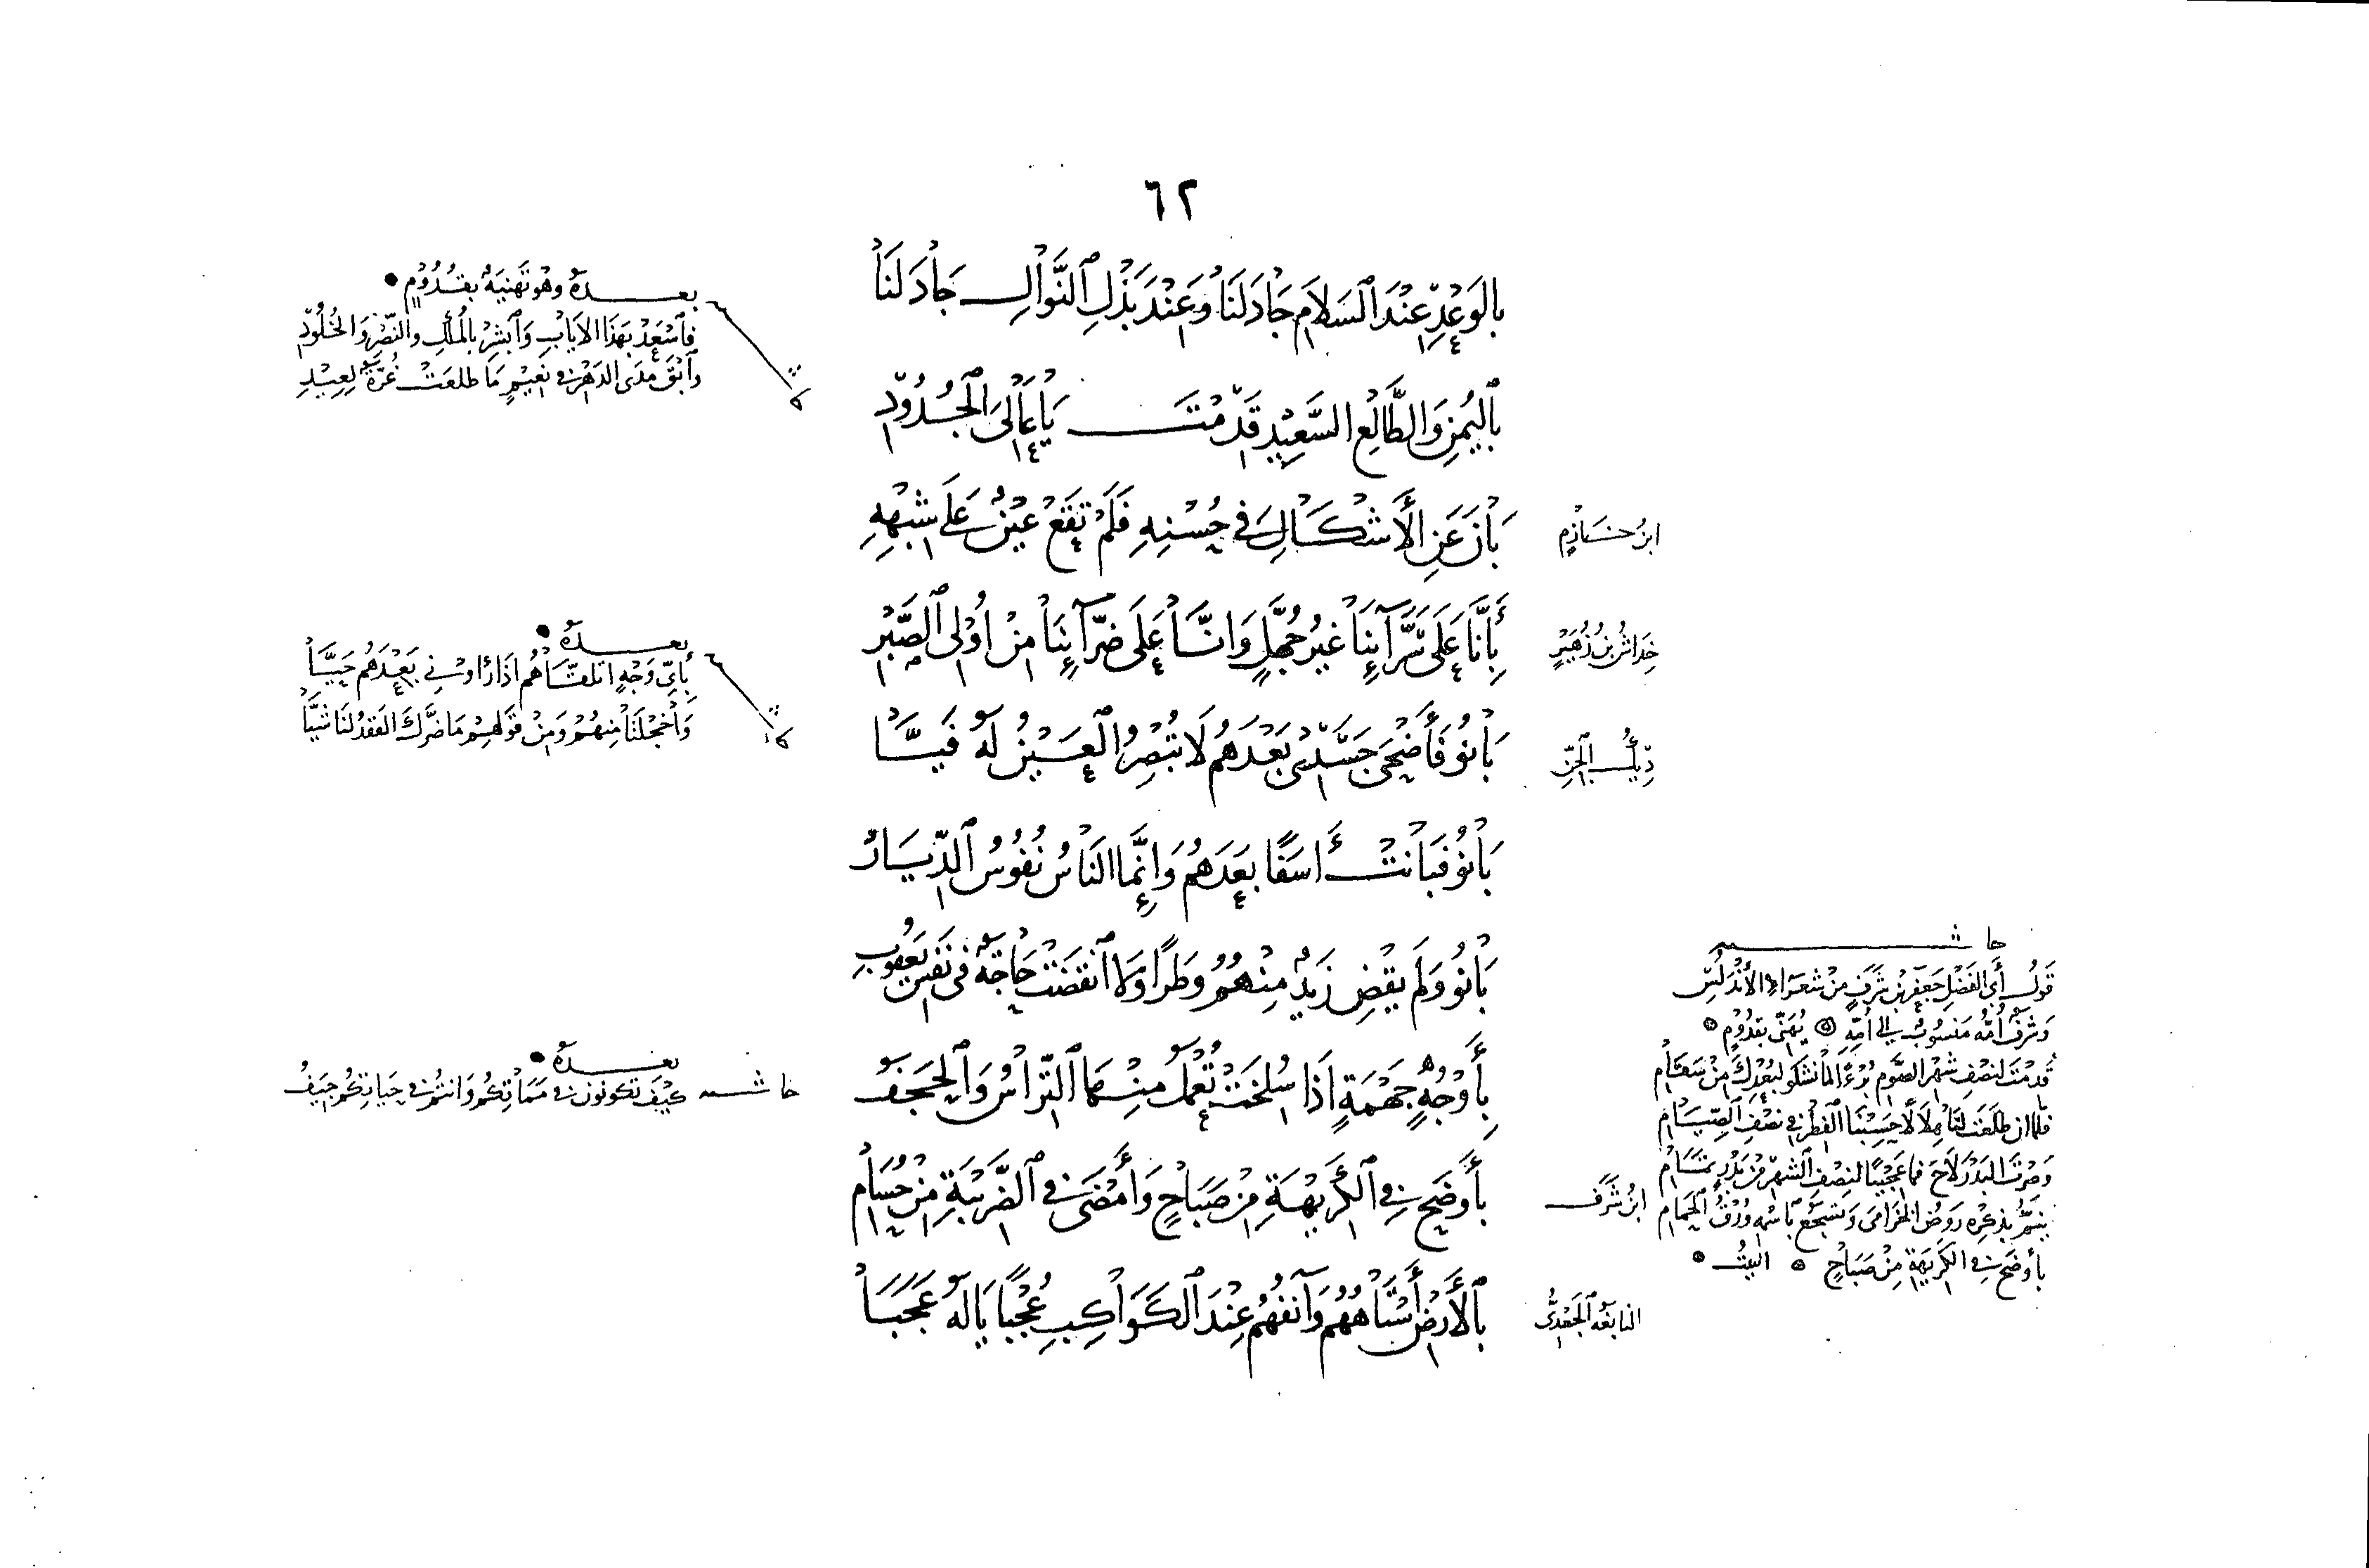 ٦٢
بِالوَعْدِ عِنْدَ السَلَامِ جَادَ لَنَا وَعِنْدَ بَذْلِ النَّوَالِ جَادَلَنَا
بِاليُمْنِ وَالطَّالِعِ السَّعِيْدِ قَدِمْتَ يَا عَالِيَ الْجُدُوْدِ
بعده وهو تهنية بقدوم
فَاسْعَدْ بِهَذَا الايَابِ وَابْشِرْ بِالمُلْكِ وَالنَّصْرِ وَالخُلُوْدِ
وَابْقَ مَدَى الدَهْرِ فِي نَعِيْمٍ مَا طَلعَتْ غُرَّةٌ لِعِيْدِ
ابنُ حَازِمٍ
بَانَ عَنِ الأَشْكَالِ فِي حُسْنِهِ فَلَمْ تَقَعْ عَيْنٌ عَلَى شِبْهِهِ
خِدَاشُ بنُ زُهَيْرٍ
بِأَنَّا عَلَى سَرَّآئِنَا غَيْرُ جُهَّلٍ وَانَّا عَلَى ضَرَّآئِنَا مِنْ اُوْلِي الصَّبْرِ
دِيْكُ الجِنِّ
بَانُوْ فَأَضْحَى جَسَدِيْ بَعْدَهُم لَا تُبْصِرُ العَيْنُ لَهُ فَيَّا
بعده
بِأَيِّ وَجْهٍ اتَلَقَّاهُم اذَا رَاوْنِي بَعْدَهُم حَيَّا
وَاخَجْلَتَا مِنْهُمْ وَمِنْ قَوْلهِمْ مَا ضَرَّكَ الفَقْدُ لنَا شَيَّا
بَانُوْ فَبَانَتْ أَسَفًا بَعْدَهُم وَإِنَّمَا النَاسُ نُفُوْسُ الدِّيَارْ
بَانُوْ وَلَم يَقْضِ زَيْدٌ مِنْهُمُ وَطَرًا وَلَا انْقَضَتْ حَاجَةٌ فِي نَفْسِ يَعْقُوْبِ
بِأَوْجُهٍ جَهْمَةٍ اذَا سُلِخَتْ تُعْمَلُ مِنْهَا التِّرَاسُ وَالحَجَفُ
حاشـــ كَيْفَ تَكُوْنُوْنَ فِي مَمَاتِكُمُ وَانْتُمْ فِي حَيَاتِكُم جِيَفُ
ابنُ شَرَفٍ
بِأَوْضَحَ فِي الكَرِيْهَةِ مِنْ صَبَاحٍ وَأَمْضَى فِي الضَّرِيْبَةِ مِنْ حُسَامِ
حاشـــ
قَولُ أَبِي الفَضْلِ جَعفَرِ بْنِ شَرَفٍ مِنْ شعَرَاءِ الأَنْدَلُسِ
وَشَرَفٌ أُمُّهُ مَنسُوبٌ إِلَى أُمِّهِ يُهَنِّي بقدُوْمٍ
قَدِمْتَ لنصْفِ شَهْرِ الصَّوْمِ بُرْءًا لمَا نَشْكُو لبُعْدِكَ مِنْ سَقَامِ
فلمَا ان طلَعْتَ لنَا هِلَالًا حَسِبْنَا الفِطْرَ فِي نصْفِ الصِّيَامِ
وَصِرْتَ البَدْرَ لَاحَ فَمَا عَجِبْنَا لنِصْفِ الشَهْرِ مِنْ بَدْرٍ تَمَامِ
يَنِمُّ بذِكْرِه رَوْضُ الخزَامَى وَتَسْجَعُ باسْمهِ وُرْقُ الحَمَامِ
بِأَوْضَحَ فِي الكَرِيْهَةِ مِنْ صَبَاحٍ البيتُ
النابِغَةُ الجَعْدِيُّ
بِالأَرْضِ أَسْتَاهُهُمْ وَآنُفُهُمْ عِنْدَ الكَوَاكِبِ عُجْبًا يَا لَهُ عَجَبَا